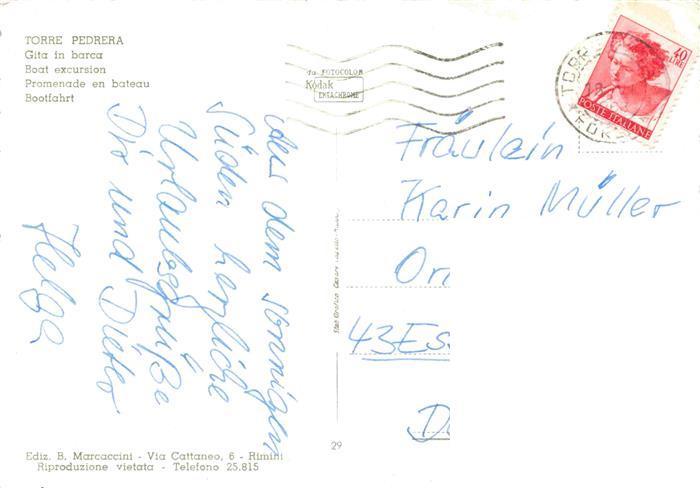 TORRE PEDRERA
Gita in barca
Boat excursion
Promenade en bateau
Bootfahrt
da FOTOCOLOR
Kodak
EKTACHROME
40
LIRE
POSTE ITALIANE
TORR
Aus dem sonnigen
Süden herzliche
Urlaubsgrüße
Dir und Dieter
Helga
Fräulein
Karin Müller
On
43 Es
D
29
Ediz. B. Marcaccini - Via Cattaneo, 6 - Rimini
Riproduzione vietata - Telefono 25.815